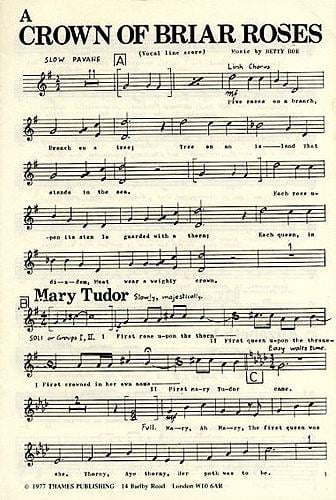 A
CROWN OF BRIAR ROSES
(Vocal line score) Music by BETTY ROE
SLOW PAVANE A Link Chorus
11
mf Five roses on a branch,
Branch on a tree; Tree on an is——land That
stands in the sea. Each rose u-
-pon its stem is guarded with a thorn; Each queen, in
di—a—dem, Must wear a weighty crown.
B Mary Tudor Slowly, majestically.
SOLI or Groups I, II. I First rose u-pon the thorn —— II First queen u-pon the throne—
Easy waltz time.
I First crowned in her own name —— II First Ma-ry Tu-dor came. C
Full. Ma—ry, Ah Ma—ry, The first queen was
she. Thorny, Aye thorny, Her path was to be.
© 1977 THAMES PUBLISHING 14 Barlby Road London W10 6AR